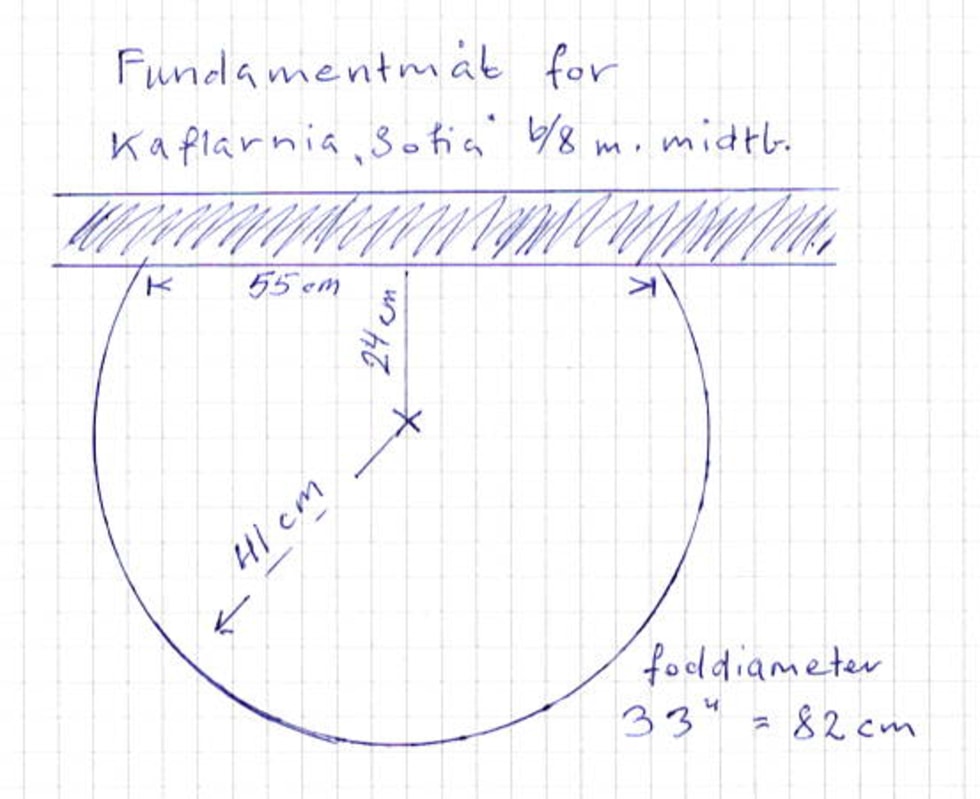 Fundamentmåt for
Kaflarnia „Sofia" 6/8 m. midtb.
55 cm
24 cm
41 cm
foddiameter
33" = 82 cm